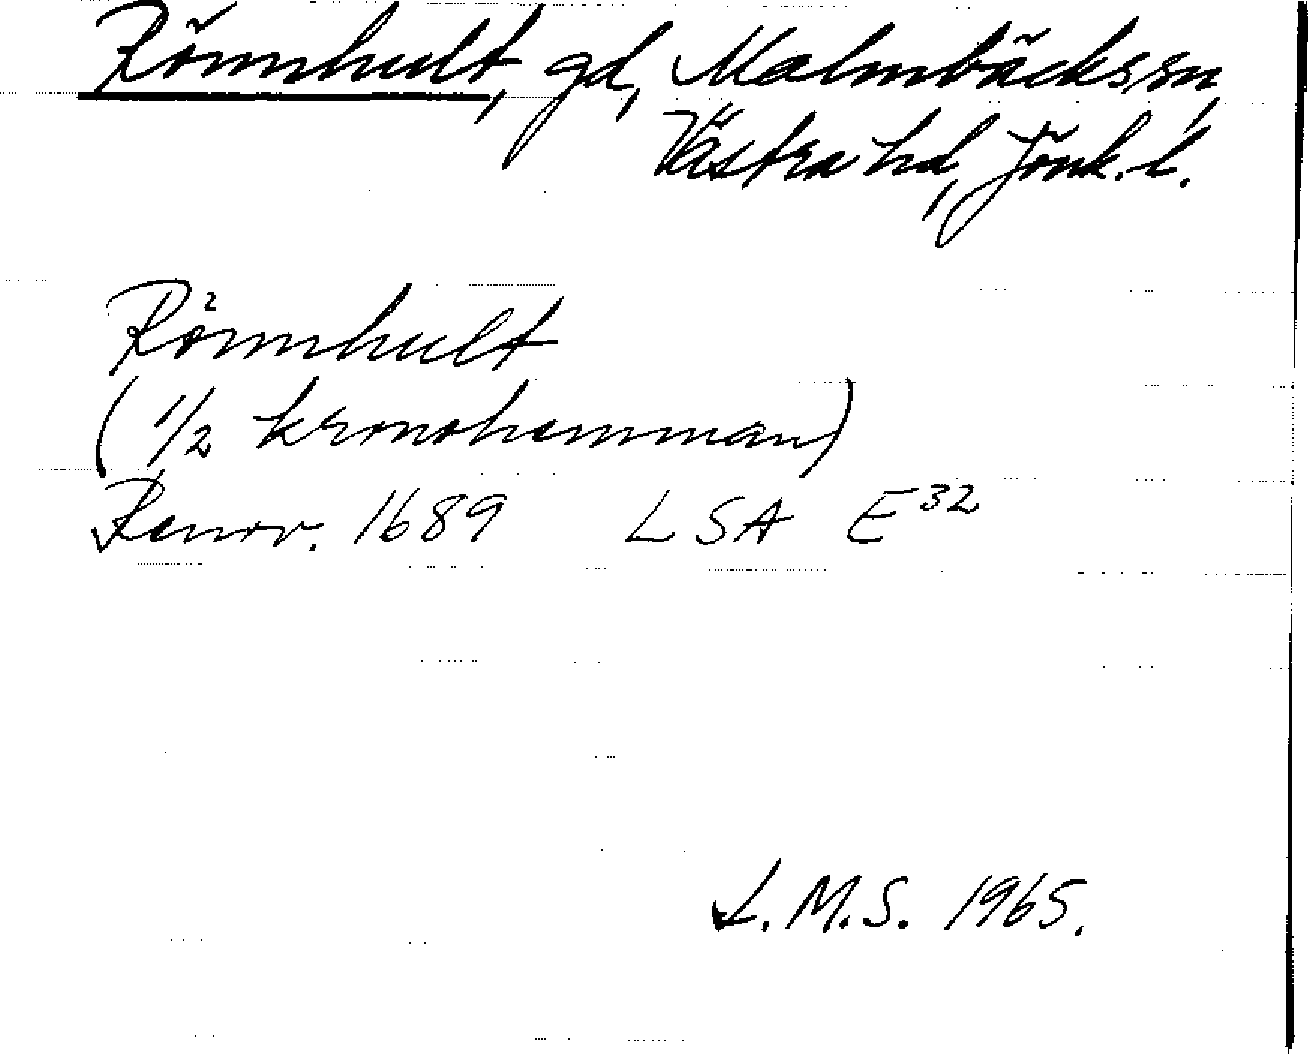 Rönnhult, gd, Malmbäcks sn,
Västra hd, Jönk. l.
Rönnhult
(1/2 kronohemman)
Renov. 1689 LSA E32
L. M. S. 1965.